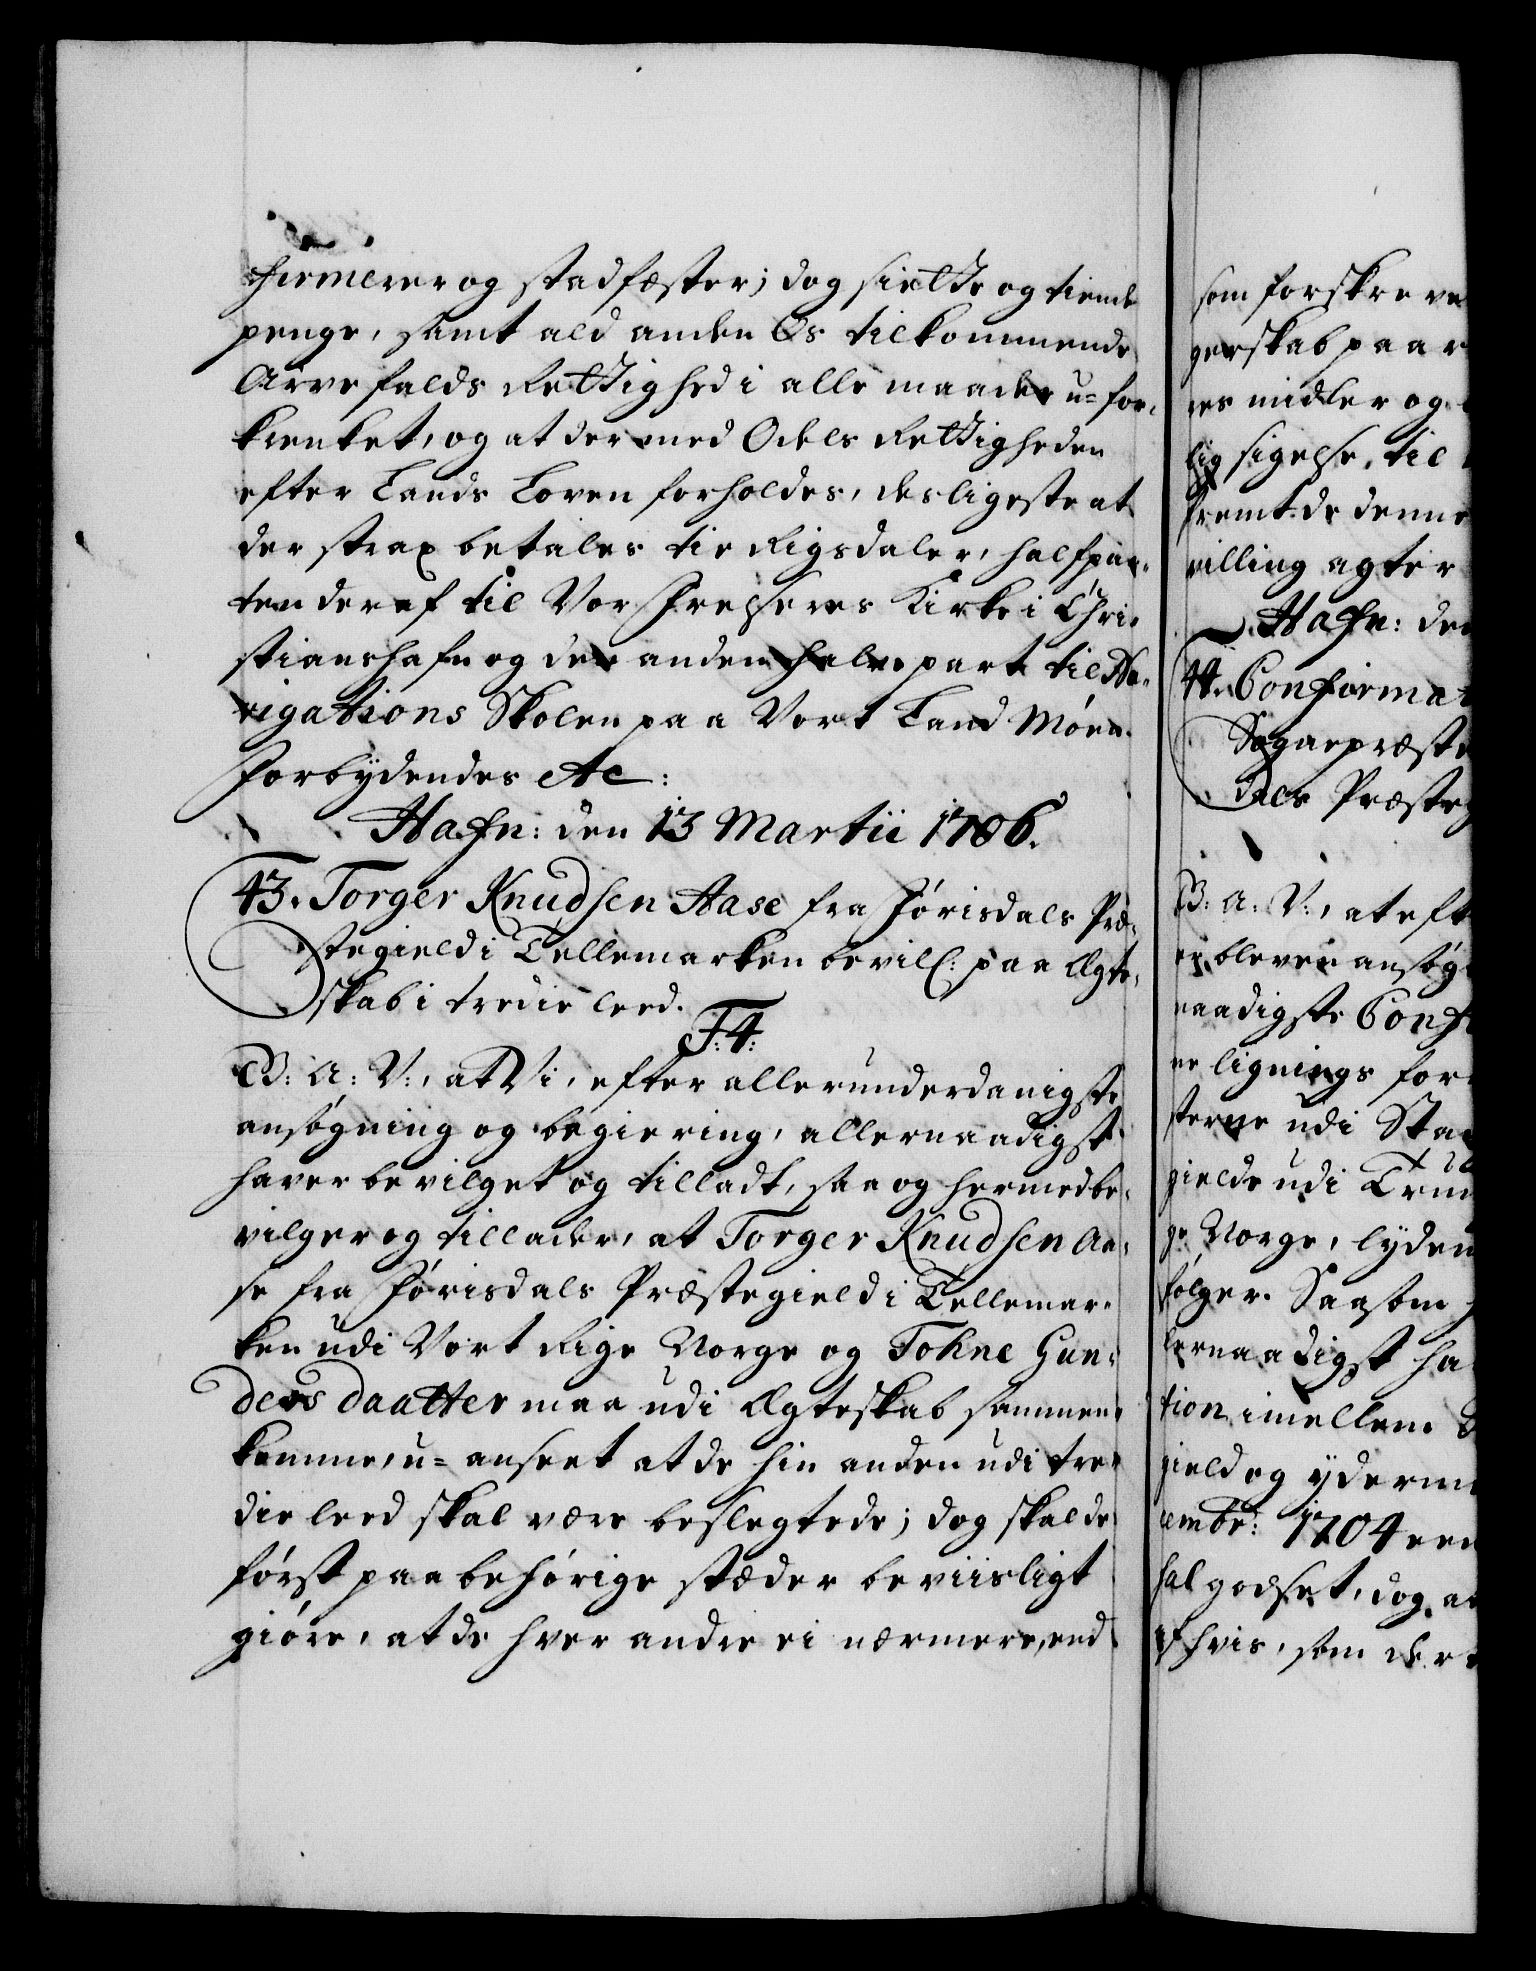 firmerer og stadfæster; dog siette og tiende
penge, samt ald anden Os tilkommende
Arvefalds Rettighed i alle maader u-for-
krenket, og at der med Odels Rettigheden
efter Lands Loven forholdes, desligeste at
der strax betales tie Rigsdaler, halfpar-
ten deraf til Vor Frelseres Kirke i Chri-
stianshafn og den anden halve part til Na-
vigations Skolen paa Vort Land Møen.
Forbydendes etc:
Hafn: den 13 Martii 1706.
43. Torger Knudsen Aase fra Hørisdals Præ-
stegield i Tellemarken bevil: paa Ægte-
skab i tredie leed.
F: 4:
G: A: V:, at Vi, efter allerunderdanigste
ansøgning og begiering, allernaadigst
haver bevilget og tilladt, saa og hermed be-
vilger og tillader, at Torger Knudsen Aa-
se fra Hørisdals Præstegield i Tellemar-
ken udi Vort Rige Norge og Tohne Gun-
ders daatter maa udi Ægteskab sammen-
komme, u-anseet at de hin anden udi tre-
die leed skal være beslegtede; dog skal de
først paa behørige stæder beviisligt
giøre, at de hver andre ei nærmere, end
som forskreve
gerskab paa
res midler og
lig sigelse, til
fremt de denne
villing agter
Hafn: den
44. Confirmat
Sognepræste
dals Præsteg
G: A: V:, at eft
er bleven ansøg
naadigste Conf
ne lignings for
sterne udi Sta
gields udi Tru
ge Norge, lyden
følger. Saasom
lernaadigst ha
tion imellem
gield og yderm
embr: 1704 een
hal godset, dog
af hvis, som der